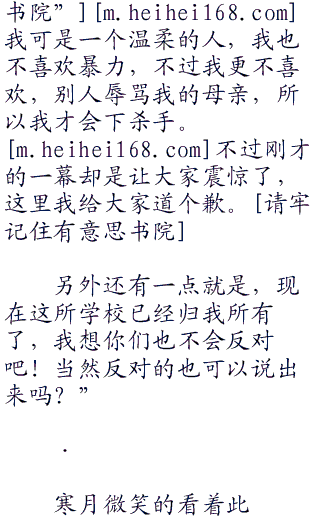 书院”][m.heihei168.com]
我可是一个温柔的人，我也
不喜欢暴力，不过我更不喜
欢，别人辱骂我的母亲，所
以我才会下杀手。
[m.heihei168.com]不过刚才
的一幕却是让大家震惊了，
这里我给大家道个歉。[请牢
记住有意思书院]
另外还有一点就是，现
在这所学校已经归我所有
了，我想你们也不会反对
吧！当然反对的也可以说出
来吗？”
.
寒月微笑的看着此